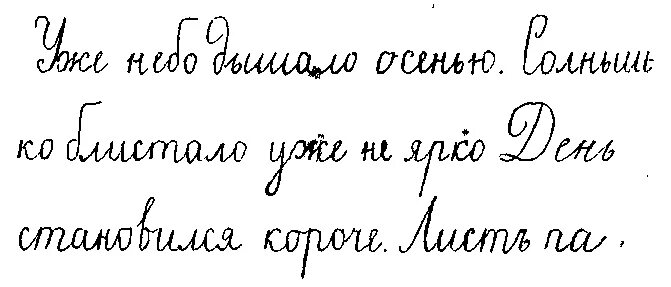 Уже небо дышало осенью. Солнышь
ко блистало уже не ярко День
становился короче. Листъ па.